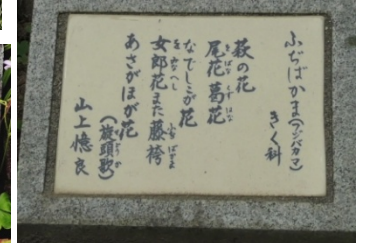 ふぢばかま(フジバカマ)
きく科
萩の花
尾花葛花
なでしこが花
女郎花また藤袴
あさがほが花
(旋頭歌)
山上憶良